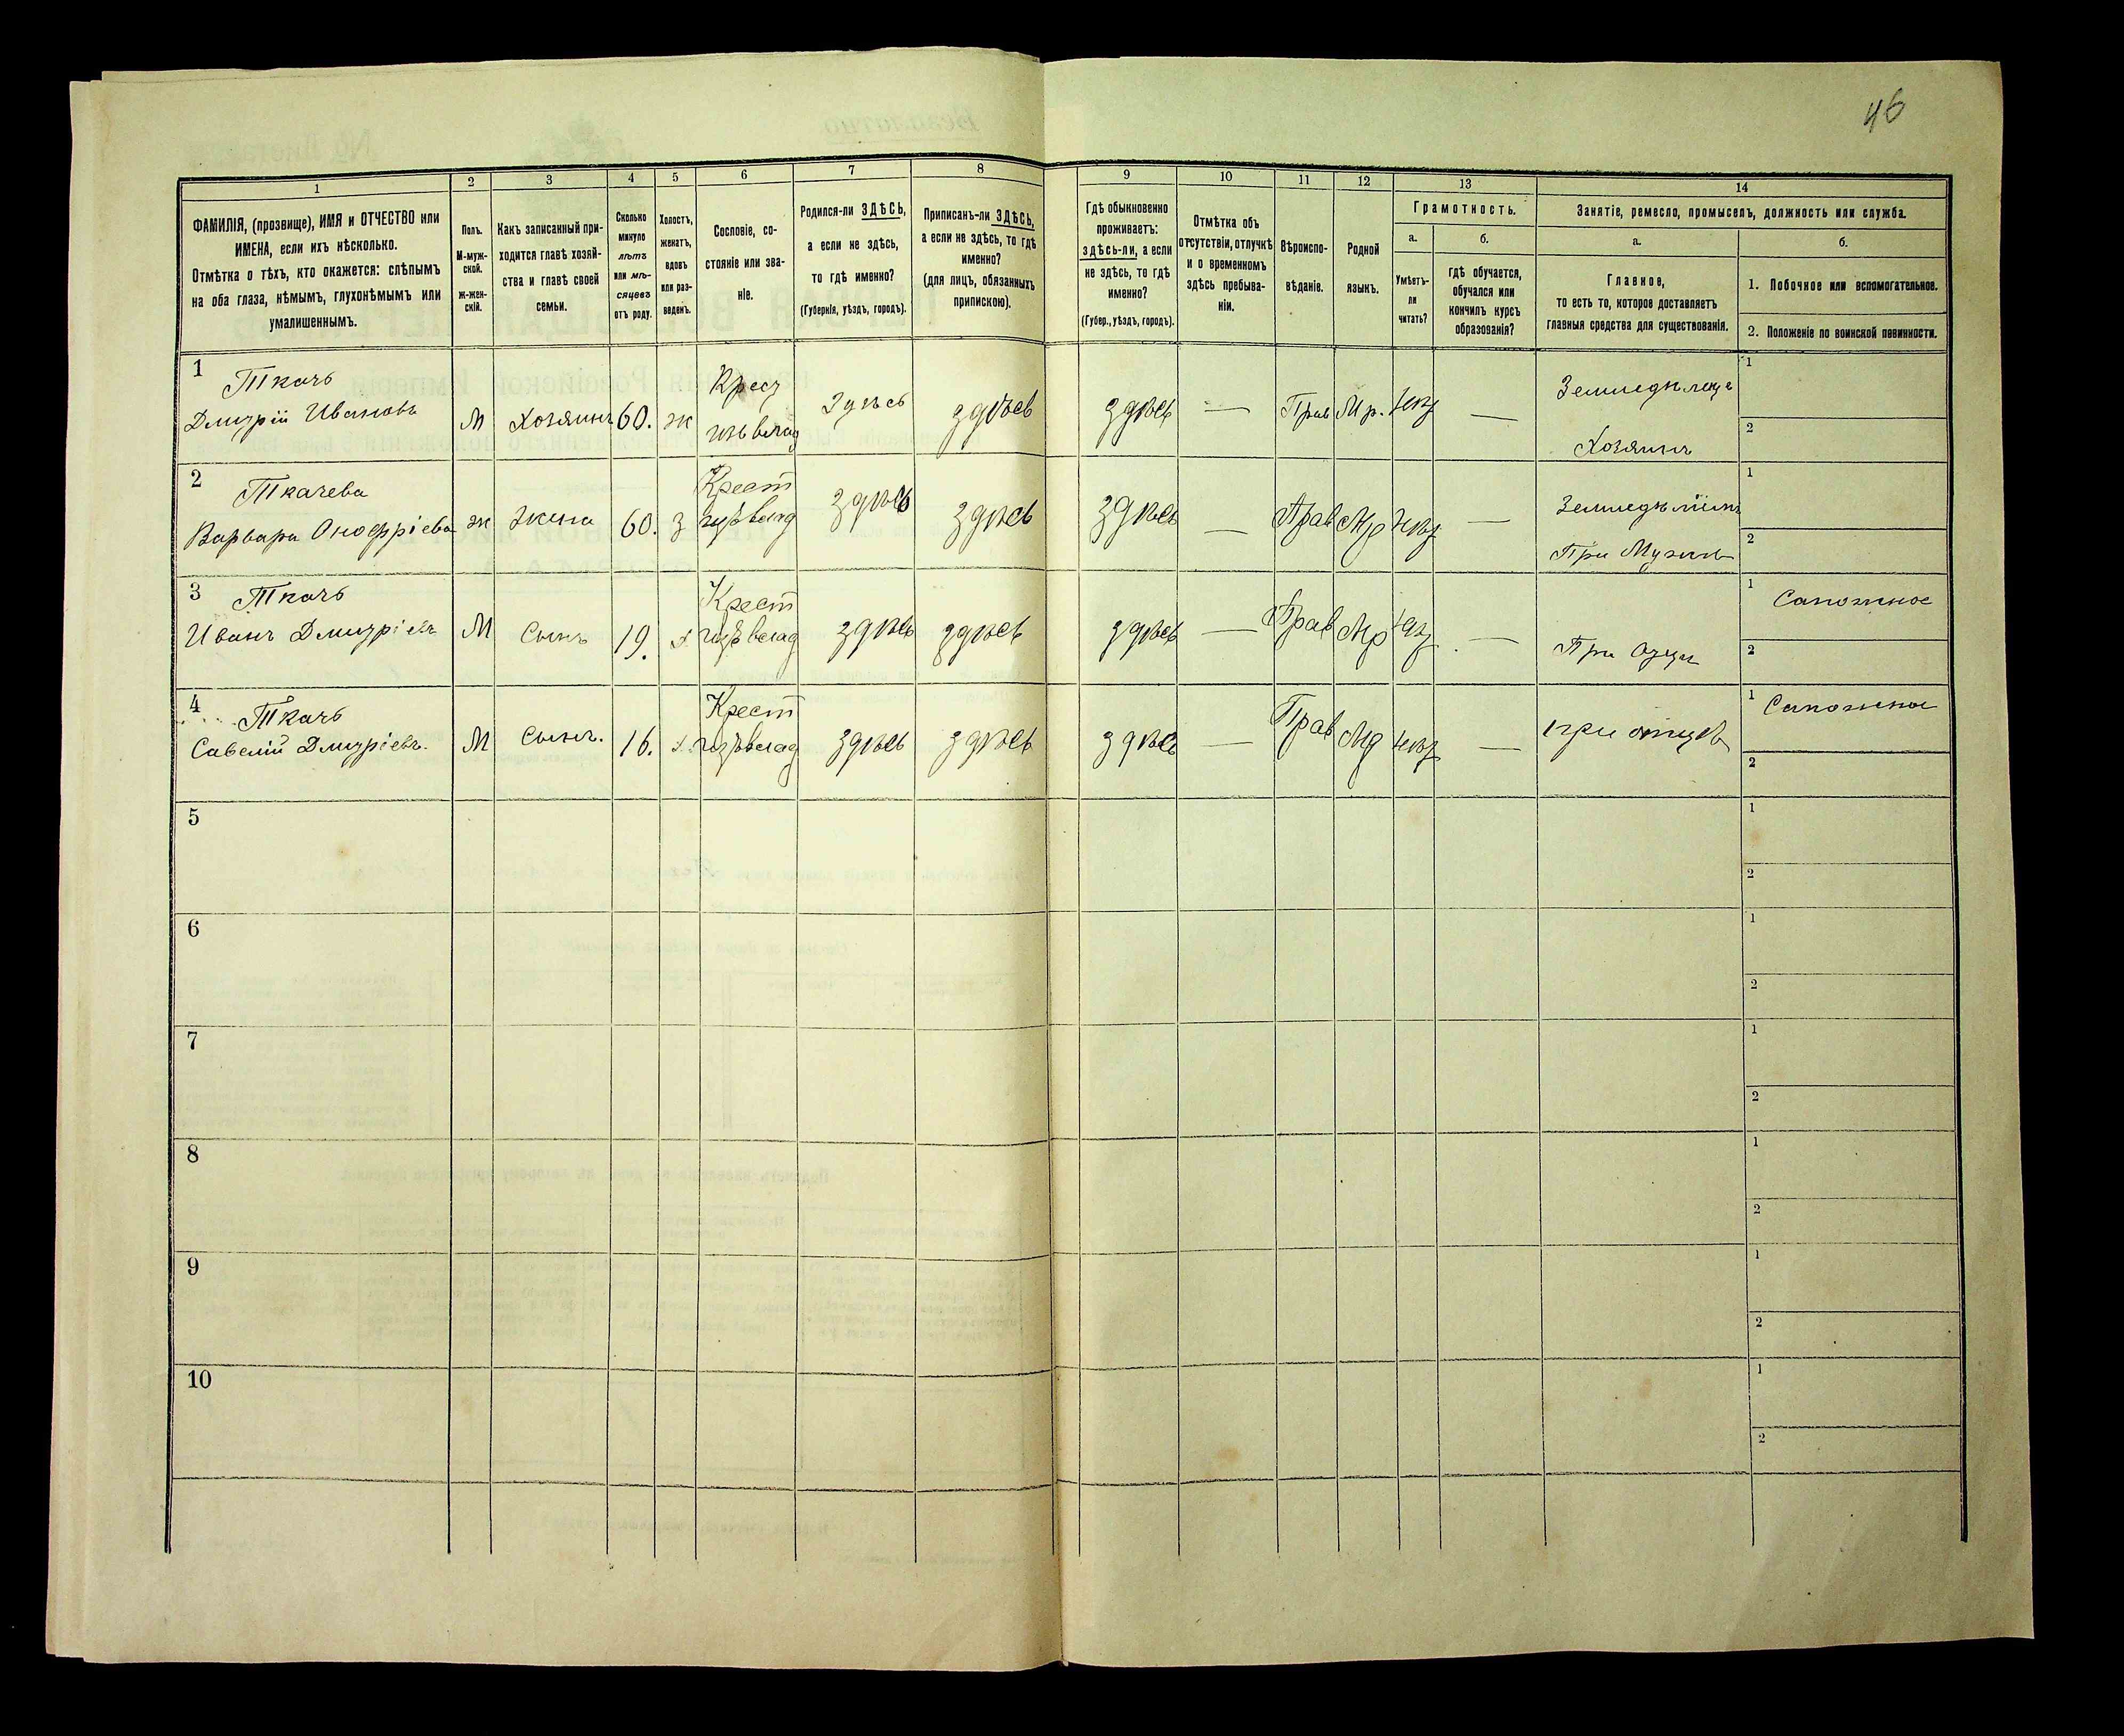 46
1 2 3 4 5 6 7 8 9 10 11 12 13 14
ФАМИЛІЯ, (прозвище), ИМЯ и ОТЧЕСТВО или
ИМЕНА, если ихъ нѣсколько.
Отмѣтка о тѣхъ, кто окажется: слѣпымъ
на оба глаза, нѣмымъ, глухонѣмымъ или
умалишеннымъ.
Полъ.
М-муж-
ской.
Ж-жен-
скій.
Какъ записанный при-
ходится главѣ хозяй-
ства и главѣ своей
семьи.
Сколько
минуло
лѣтъ
или мѣ-
сяцевъ
отъ роду.
Холостъ,
женатъ,
вдовъ
или раз-
веденъ.
Сословіе, со-
стояніе или зва-
ніе.
Родился-ли ЗДѢСЬ,
а если не здѣсь,
то гдѣ именно?
(Губернія, уѣздъ, городъ).
Приписанъ-ли ЗДѢСЬ,
а если не здѣсь, то гдѣ
именно?
(для лицъ, обязанныхъ
припискою).
Гдѣ обыкновенно
проживаетъ:
здѣсь-ли, а если
не здѣсь, то гдѣ
именно?
(Губер., уѣздъ, городъ).
Отмѣтка объ
отсутствіи, отлучкѣ
и о временномъ
здѣсь пребыва-
ніи.
Вѣроиспо-
вѣданіе.
Родной
языкъ.
Грамотность.
а.
Умѣетъ-
ли
читать?
б.
гдѣ обучается,
обучался или
кончилъ курсъ
образованія?
Занятіе, ремесло, промыселъ, должность или служба.
а.
Главное,
то есть то, которое доставляетъ
главныя средства для существованія.
б.
1. Побочное или вспомогательное.
2. Положеніе по воинской повинности.
1
Ткачъ
Дмитрій Ивановъ
М Хозяинъ 60. ж
Крест
здѣсь здѣсь здѣсь — Прав Мр. —
Хозяинъ
1
2
2
Ткачева
Варвара Онофріева
ж жена 60. з
Крест
здѣсь здѣсь здѣсь — Прав Мр —
При Мужѣ
1
2
3
Ткачъ
Иванъ Дмитріевъ
М Сынъ 19. х
Крест
здѣсь здѣсь здѣсь — Прав Мр —
При Отцѣ
1 Сапожное
2
4
Ткачъ
Савелій Дмитріевъ.
М Сынъ. 16. х.
Крест
здѣсь здѣсь здѣсь — Прав Мр —
при отцѣ
1 Сапожное
2
5
1
2
6
1
2
7
1
2
8
1
2
9
1
2
10
1
2